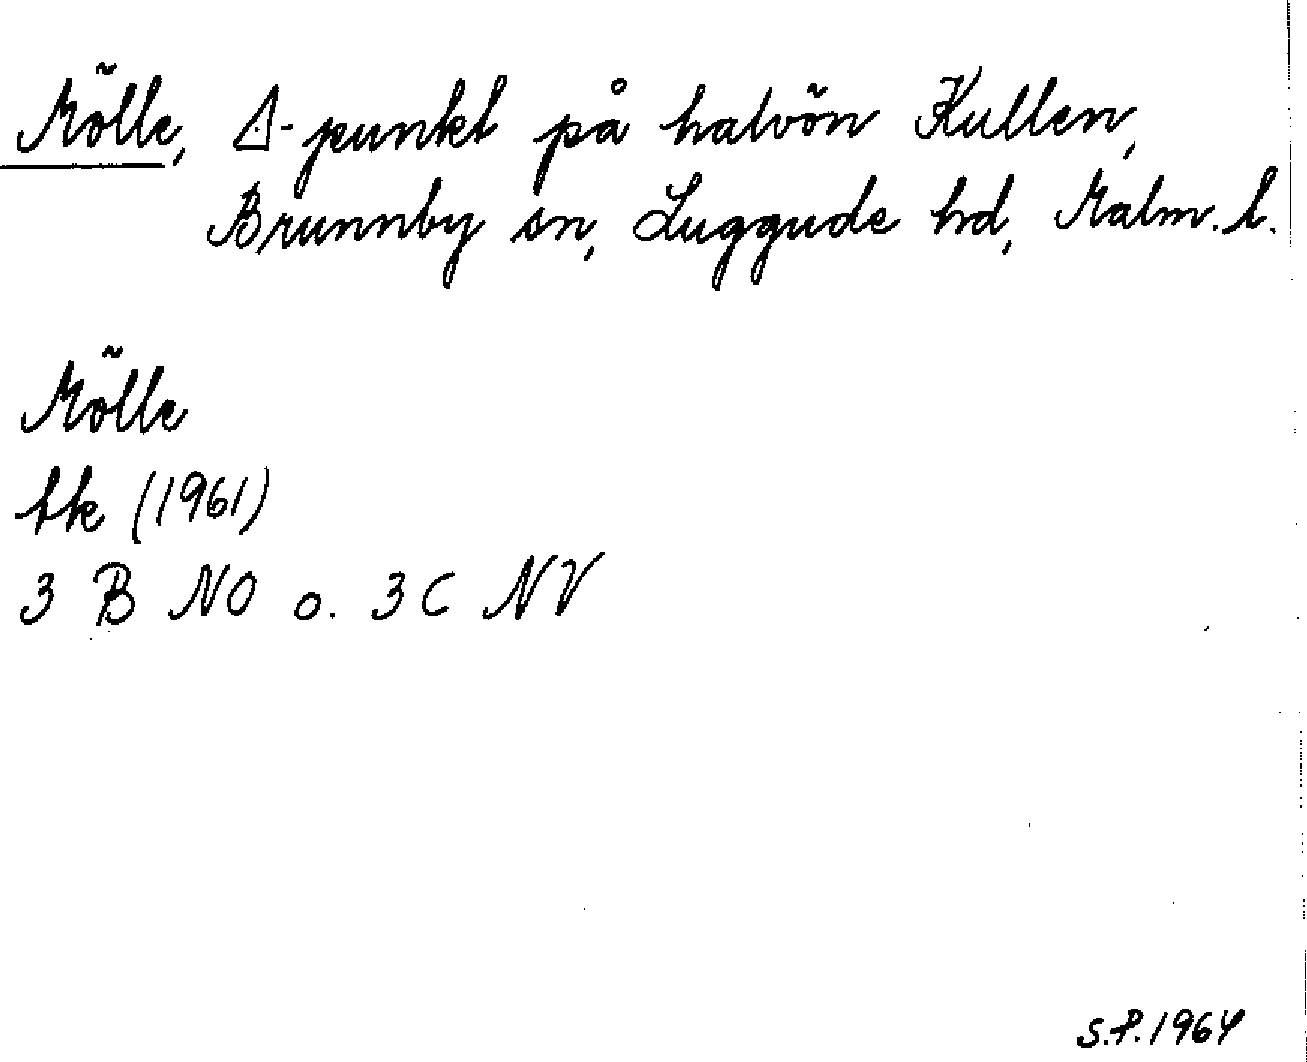 Mölle, △-punkt på halvön Kullen,
Brunnby sn, Luggude hd, Malm. l.
Mölle
tk (1961)
3 B NO o. 3 C NV
S.P. 1964